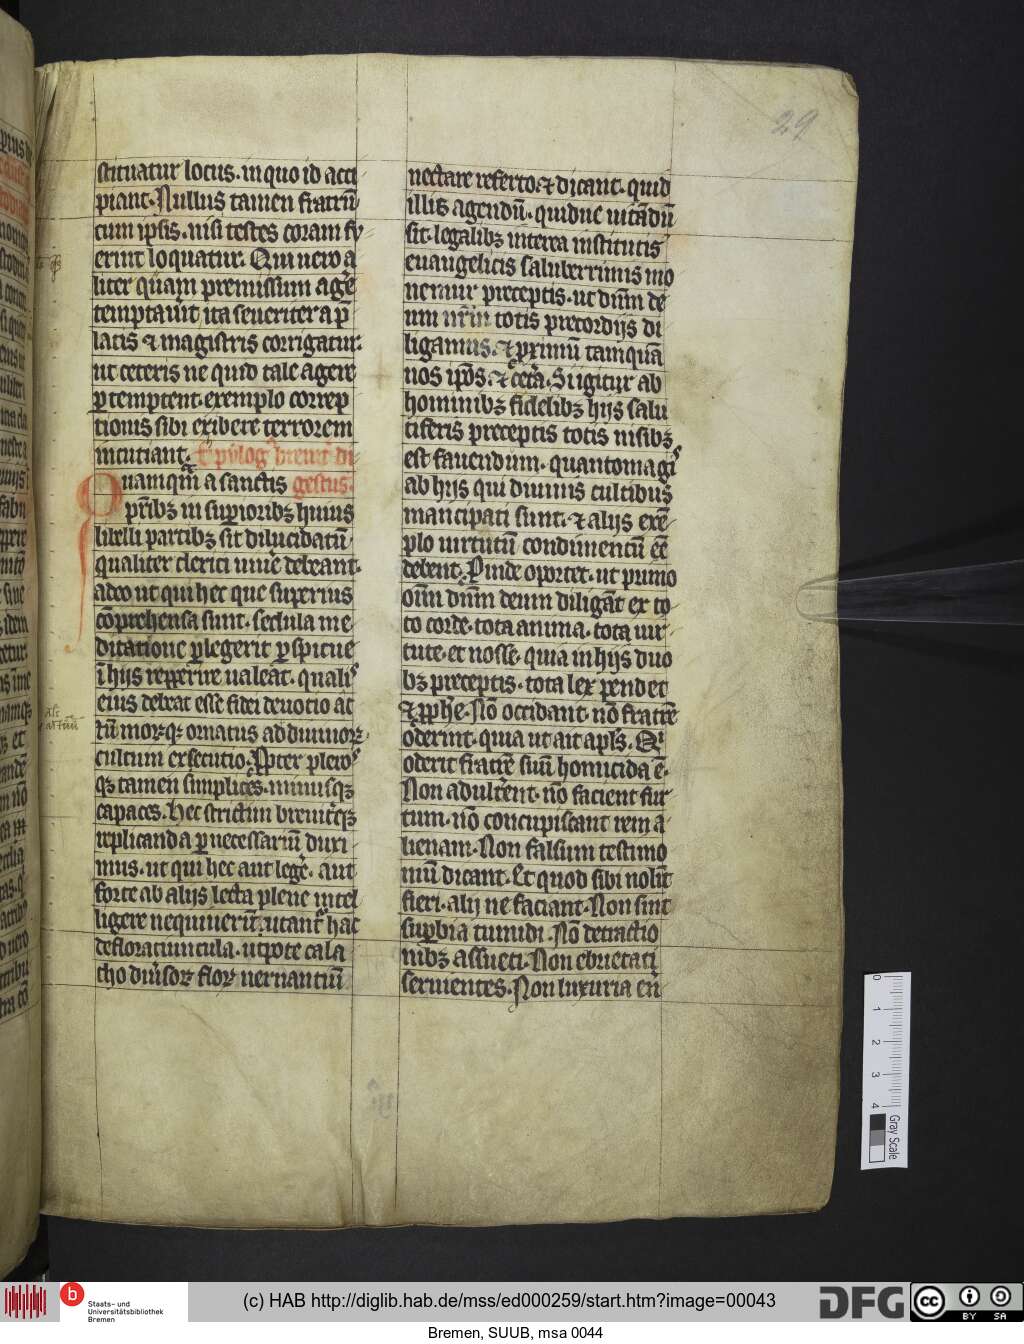 29
stituatur locus. in quo id acci
piant. Nullus tamen fratrū
cum ip̄sis. nisi testes coram fu
erint loquatur. Qui uero a
liter quam premissum agē
temptauīt ita seueriter a p̄
latis ⁊ magistris corrigatur.
ut ceteris ne quid tale agere
ꝑtemptent. exemplo correp
tionis sibi exibere terrorem
incutiant.
Quamqm̄ a sanctis gestus.
pr̄ibꝫ in suꝑioribꝫ huius
libelli partibꝫ sit dilucidatū
qualiter clerici uiuē debeant.
adeo ut qui hec que superius
cōprehensa sunt. sedula me
ditatione ꝑlegerit ꝑspicue
ī hijs repperire ualeat. qualis
eius debeat esse fidei deuotio ac
tū morꝝqꝫ ornatus ad diuinorꝝ
cultum exsecutio. Ꝓpter pleros
qꝫ tamen simplices. minusqꝫ
capaces. Hec strictim breuit̄qꝫ
replicanda ꝑnecessariū duxi
mus. ut qui hec aut legē. aut
forte ab alijs lecta plene intel
ligere nequiuerūt. utant᷑ hac
defloratiuncula. utpote cala
tho diūsorꝝ florꝝ uernantiū
nectare referto. ⁊ dicant. quid
illis agendū. quidue uitādū
sit. legalibꝫ interea institutis
euuangelicis saluberrimis mo
nemur preceptis. ut dn̄m de
um nr̄m totis precordijs di
ligamus. ⁊ proximū tamquā
nos ip̄os. ⁊ cet̄a. Si igitur ab
hominibꝫ fidelibꝫ hijs salu
tiferis preceptis totis nisibꝫ
est fauendum. quantomagis
ab hijs qui diuinis cultibus
mancipati sunt. ⁊ alijs exē
plo uirtutū condimentū eē
debent. Proinde oportet. ut primo
om̄i dn̄m deum diligāt ex to
to corde. tota anima. tota uir
tute. et nosse. quia in hijs duo
bꝫ preceptis. tota lex pendet
⁊ ꝓphē. Nō occidant. nō fratrē
oderint. quia ut ait apl̄s. Qi
oderit fratrē suū homicida ē.
Non adulterent. nō facient fur
tum. nō concupiscant rem a
lienam. Non falsum testimo
niū dicant. Et quod sibi nolūt
fieri. alij ne faciant. Non sint
suꝑbia tumidi. Nō detractio
nibꝫ assueti. Non ebrietati
seruientes. Non luxuria en̄
0 1 2 3 4 Gray Scale
b
Staats- und
Universitätsbibliothek
Bremen
(c) HAB http://diglib.hab.de/mss/ed000259/start.htm?image=00043
DFG
cc BY SA
Bremen, SUUB, msa 0044